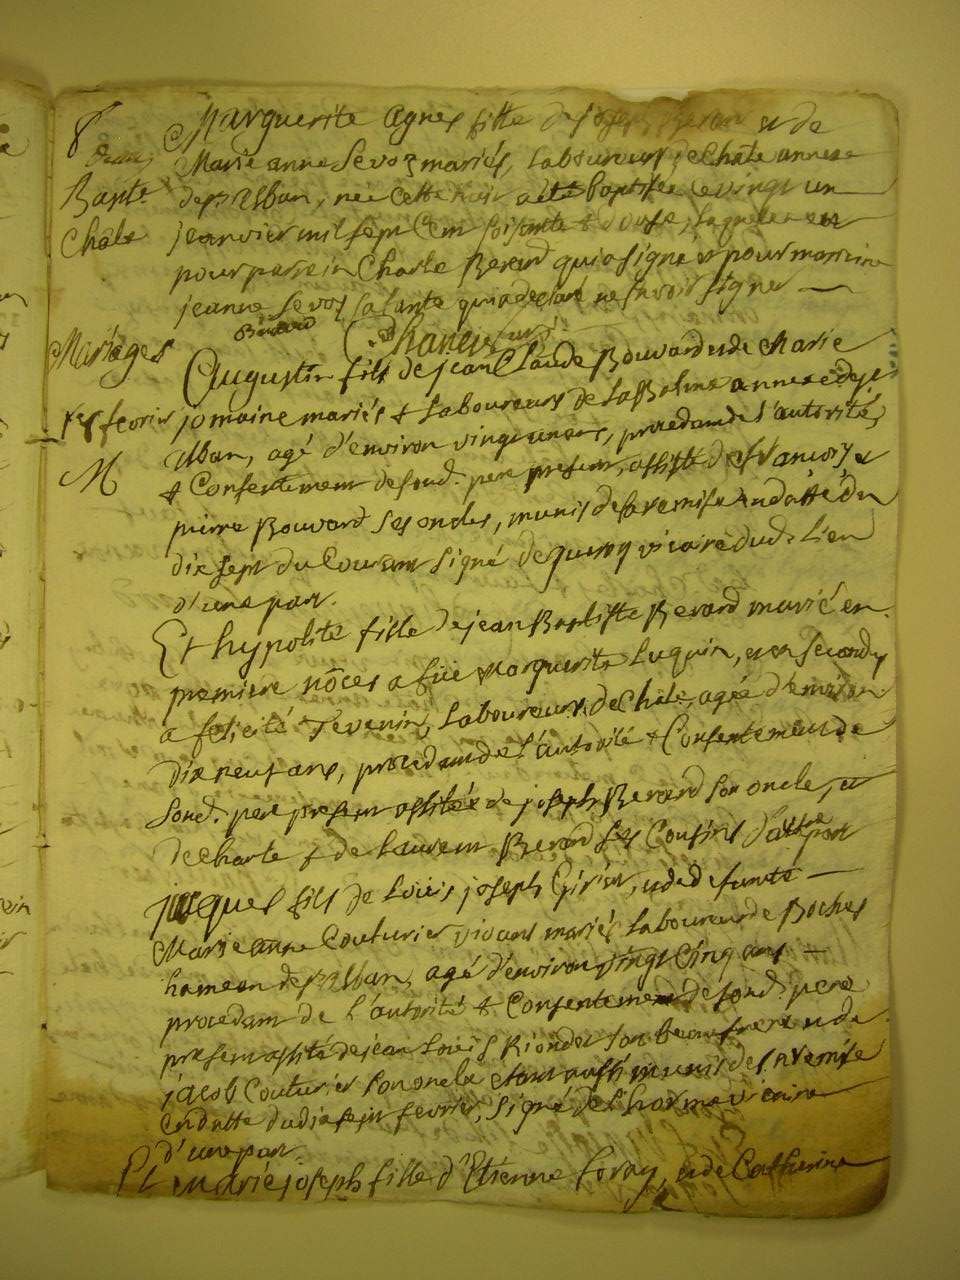 8
Marguerite agnes fille de joseph Berard et de
Marie anne Sevoz mariés, laboureurs de Chale annexe
Bapt. de st Alban, née cette nuit a été baptisée le vingt un
Chale janvier mil sept Cent soisante & douse, laquelle a eu
pour parrein Charle Berard qui a signé et pour marreine
jeanne Sevoz sa tante qui a declaré ne savoir signer —
Berard
Mariages
Augustin fils de jean Claude Bouvard et de Marie
fevrier jomaine mariés & laboureurs de la Balme annexe de st
M Alban, agé d'environ vingt un ans, procedant de l'autorité
& Consentement de sond. pere present, assisté de françois et
pierre Bouvard ses oncles, munis de la remise en datte du
dix sept du Courant signé Dequeroy vicaire dud. lieu
d'une part.
Et hypolite fille de jean Baptiste Berard marié en
premiere nôces a fûe Marguerite Luquin, et en secondes
a felicité Tevenin, laboureurs de Chale, agée d'environ
dix neuf ans, procedant de l'autorité & Consentement de
sond. pere present assistée de joseph Berard son oncle, et
de charle & de Laurent Berard ses Cousins d'autre part
jacques fils de Loüis joseph Girier, et de defunte —
Marie anne Couturier vivants mariés laboureur de Boches
hameau de st Alban, agé d'environ vingt Cinq ans —
procedant de l'autorité & Consentement de sond. pere
present assité de jean Loüis Riondet son beaufrere et de
jacob Couturier son oncle etant aussi munis de sa remise
en datte du dix sept fevrier, signé de Lhorme vicaire
d'une part.
Et marie joseph fille d'Etienne Foray, et de Catherine